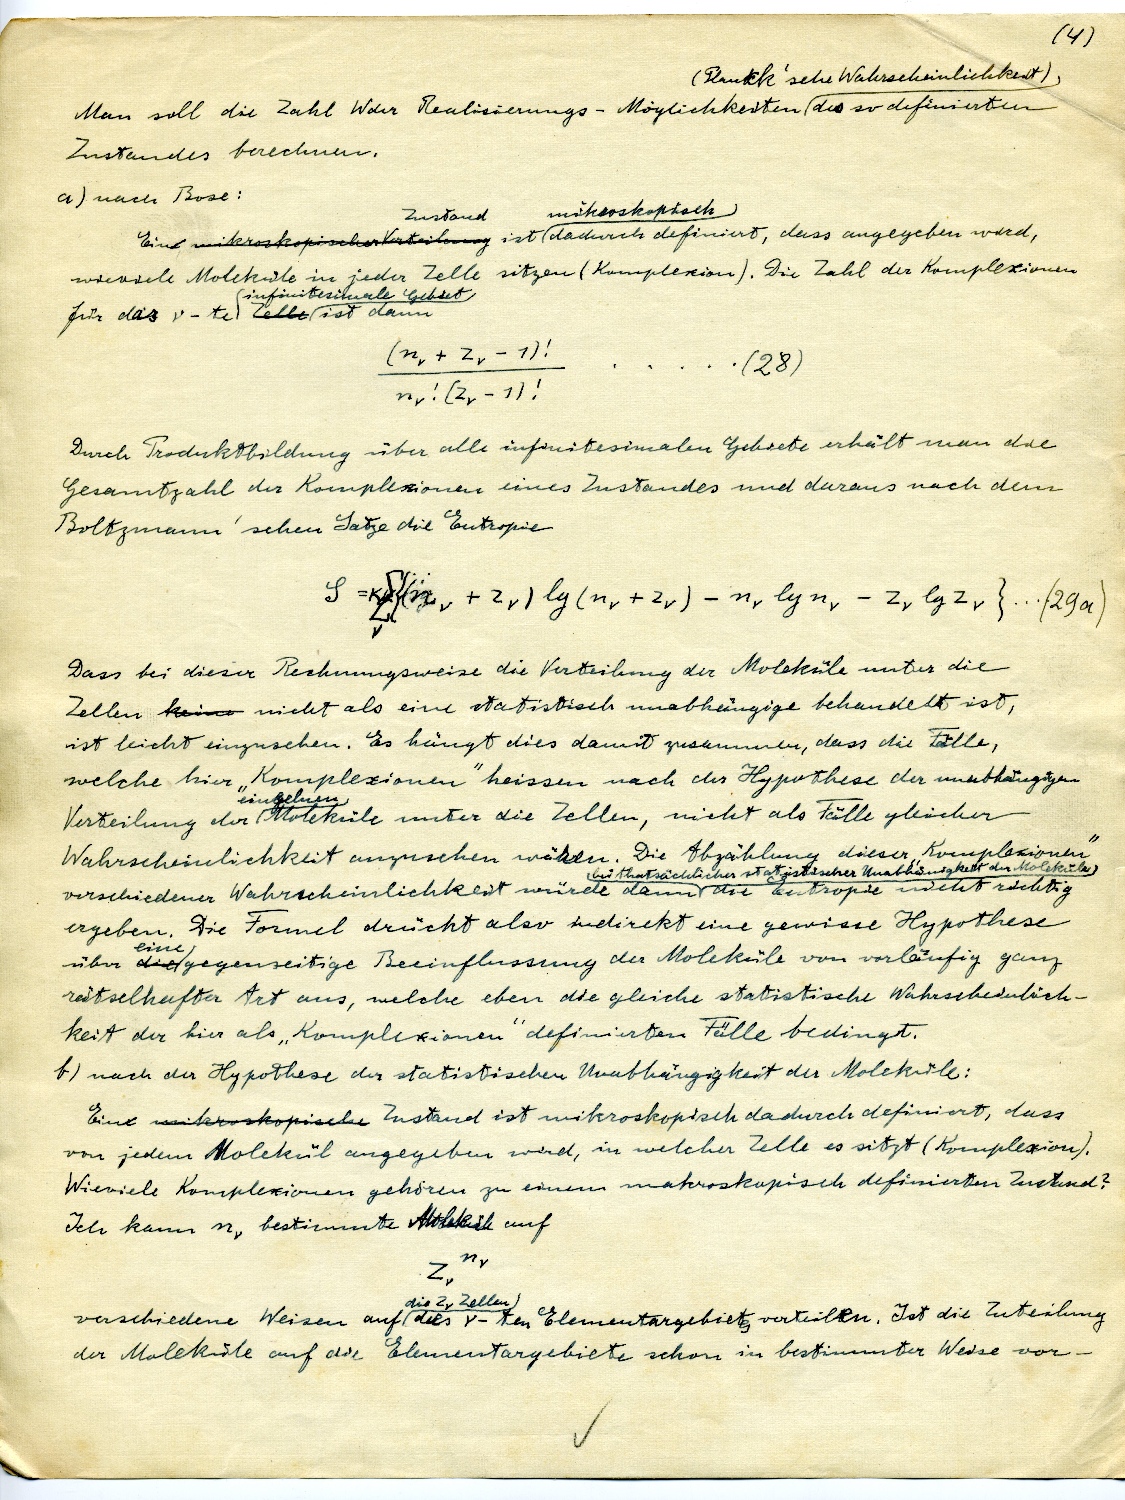 (4)
(Planck'sche Wahrscheinlichkeit),
Man soll die Zahl W der Realisierungs-Möglichkeiten des so definierten
Zustandes berechnen.
a) nach Bose:
Zustand mikroskopisch
Ein mikroskopischer Verteilung ist dadurch definiert, dass angegeben wird,
wieviele Moleküle in jeder Zelle sitzen (Komplexion). Die Zahl der Komplexionen
infinitesimale Gebiet
für das ν-te Zelle ist dann
(nν + zν - 1)!
nν! (zν - 1)! . . . . . (28)
Durch Produktbildung über alle infinitesimalen Gebiete erhält man die
Gesamtzahl der Komplexionen eines Zustandes und daraus nach dem
Boltzmann'schen Satze die Entropie
S = κ Σν {(nν + zν) lg (nν + zν) - nν lg nν - zν lg zν } ... (29a)
Dass bei dieser Rechnungsweise die Verteilung der Moleküle unter die
Zellen keine nicht als eine statistisch unabhängige behandelt ist,
ist leicht einzusehen. Es hängt dies damit zusammen, dass die Fälle,
welche hier „Komplexionen" heissen nach der Hypothese der unabhängigen
einzelnen
Verteilung der Moleküle unter die Zellen, nicht als Fälle gleicher
Wahrscheinlichkeit anzusehen wären. Die Abzählung dieser „Komplexionen"
bei thatsächlicher statistischer Unabhänigkeit der Moleküle
verschiedener Wahrscheinlichkeit würde dann die Entropie nicht richtig
ergeben. Die Formel drückt also indirekt eine gewisse Hypothese
eine
über die gegenseitige Beeinflussung der Moleküle von vorläufig ganz
rätselhafter Art aus, welche eben die gleiche statistische Wahrscheinlich-
keit der hier als „Komplexionen" definierten Fälle bedingt.
b) nach der Hypothese der statistischen Unabhängigkeit der Moleküle:
Ein mikroskopische Zustand ist mikroskopisch dadurch definiert, dass
von jedem Molekül angegeben wird, in welcher Zelle es sitzt (Komplexion).
Wieviele Komplexionen gehören zu einem makroskopisch definierten Zustand?
Ich kann nν bestimmte Moleküle auf
zν^nν
die zν Zellen
verschiedene Weisen auf des ν-ten Elementargebiets verteilen. Ist die Zuteilung
der Moleküle auf die Elementargebiete schon in bestimmter Weise vor-